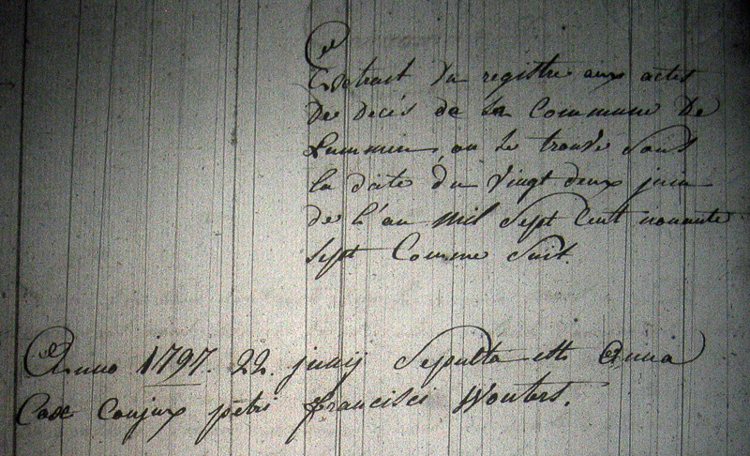 Extrait du registre aux actes
De decès de la Commune De
Lummen, ou se trouve sous
la date du vingt deux juin
de l'an mil sept cent nonante
sept Comme suit.
Anno 1797. 22. junij Sepulta est Anna
Cox Conjux petri francisci Wouters.